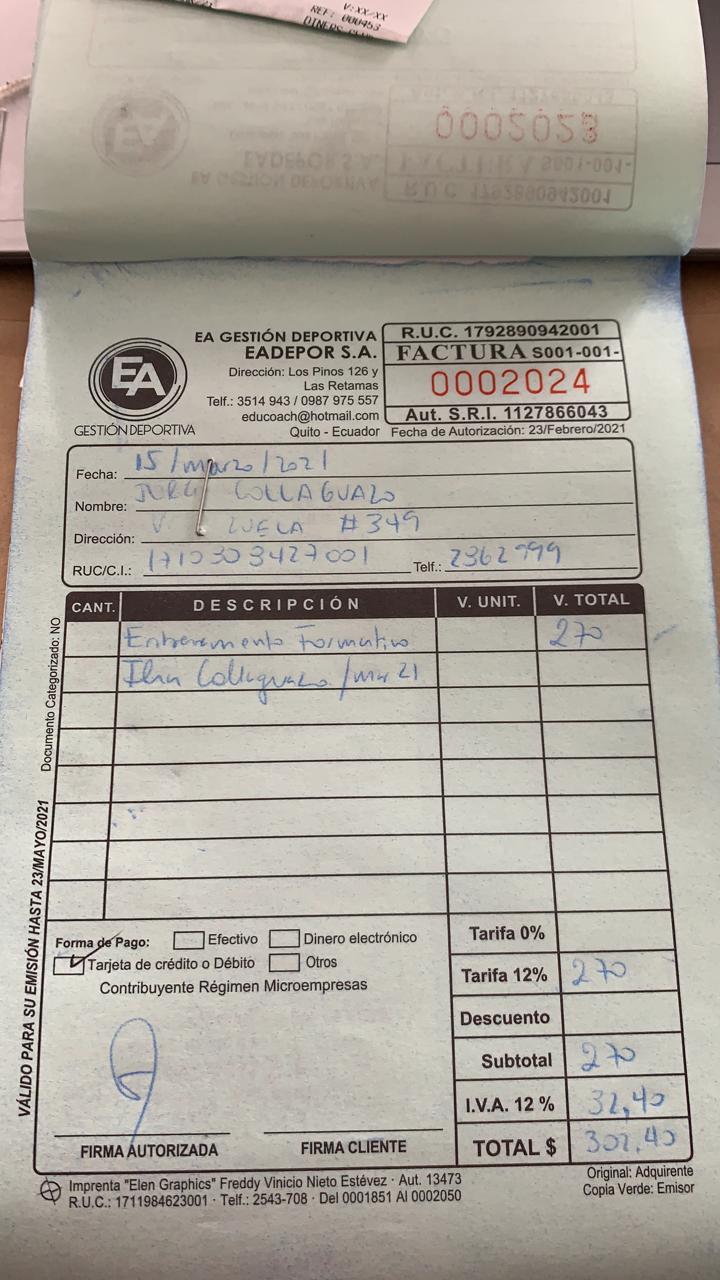 V:XX/XX
REF: 000453
DINERS CLUB
0002023
FACTURA S001-001-
R.U.C. 1792890942001
EADEPOR S.A.
EA GESTIÓN DEPORTIVA
EA
GESTIÓN DEPORTIVA
EA GESTIÓN DEPORTIVA
EADEPOR S.A.
Dirección: Los Pinos 126 y
Las Retamas
Telf.: 3514 943 / 0987 975 557
educoach@hotmail.com
Quito - Ecuador
R.U.C. 1792890942001
FACTURA S001-001-
0002024
Aut. S.R.I. 1127866043
Fecha de Autorización: 23/Febrero/2021
Fecha: 15/marzo/2021
Nombre: JORG COLLAGUAZO
Dirección: #349
RUC/C.I.: 1710303427001 Telf.: 2362999
CANT. DESCRIPCIÓN V. UNIT. V. TOTAL
Entrenamiento Formativo 270
Collaguazo /mar 21
Documento Categorizado: NO
VÁLIDO PARA SU EMISIÓN HASTA 23/MAYO/2021
Forma de Pago: Efectivo Dinero electrónico
Tarjeta de crédito o Débito Otros
Contribuyente Régimen Microempresas
Tarifa 0%
Tarifa 12% 270
Descuento
Subtotal 270
I.V.A. 12 % 32,40
TOTAL $ 302,40
FIRMA AUTORIZADA FIRMA CLIENTE
Imprenta "Elen Graphics" Freddy Vinicio Nieto Estévez · Aut. 13473
R.U.C.: 1711984623001 · Telf.: 2543-708 · Del 0001851 Al 0002050
Original: Adquirente
Copia Verde: Emisor